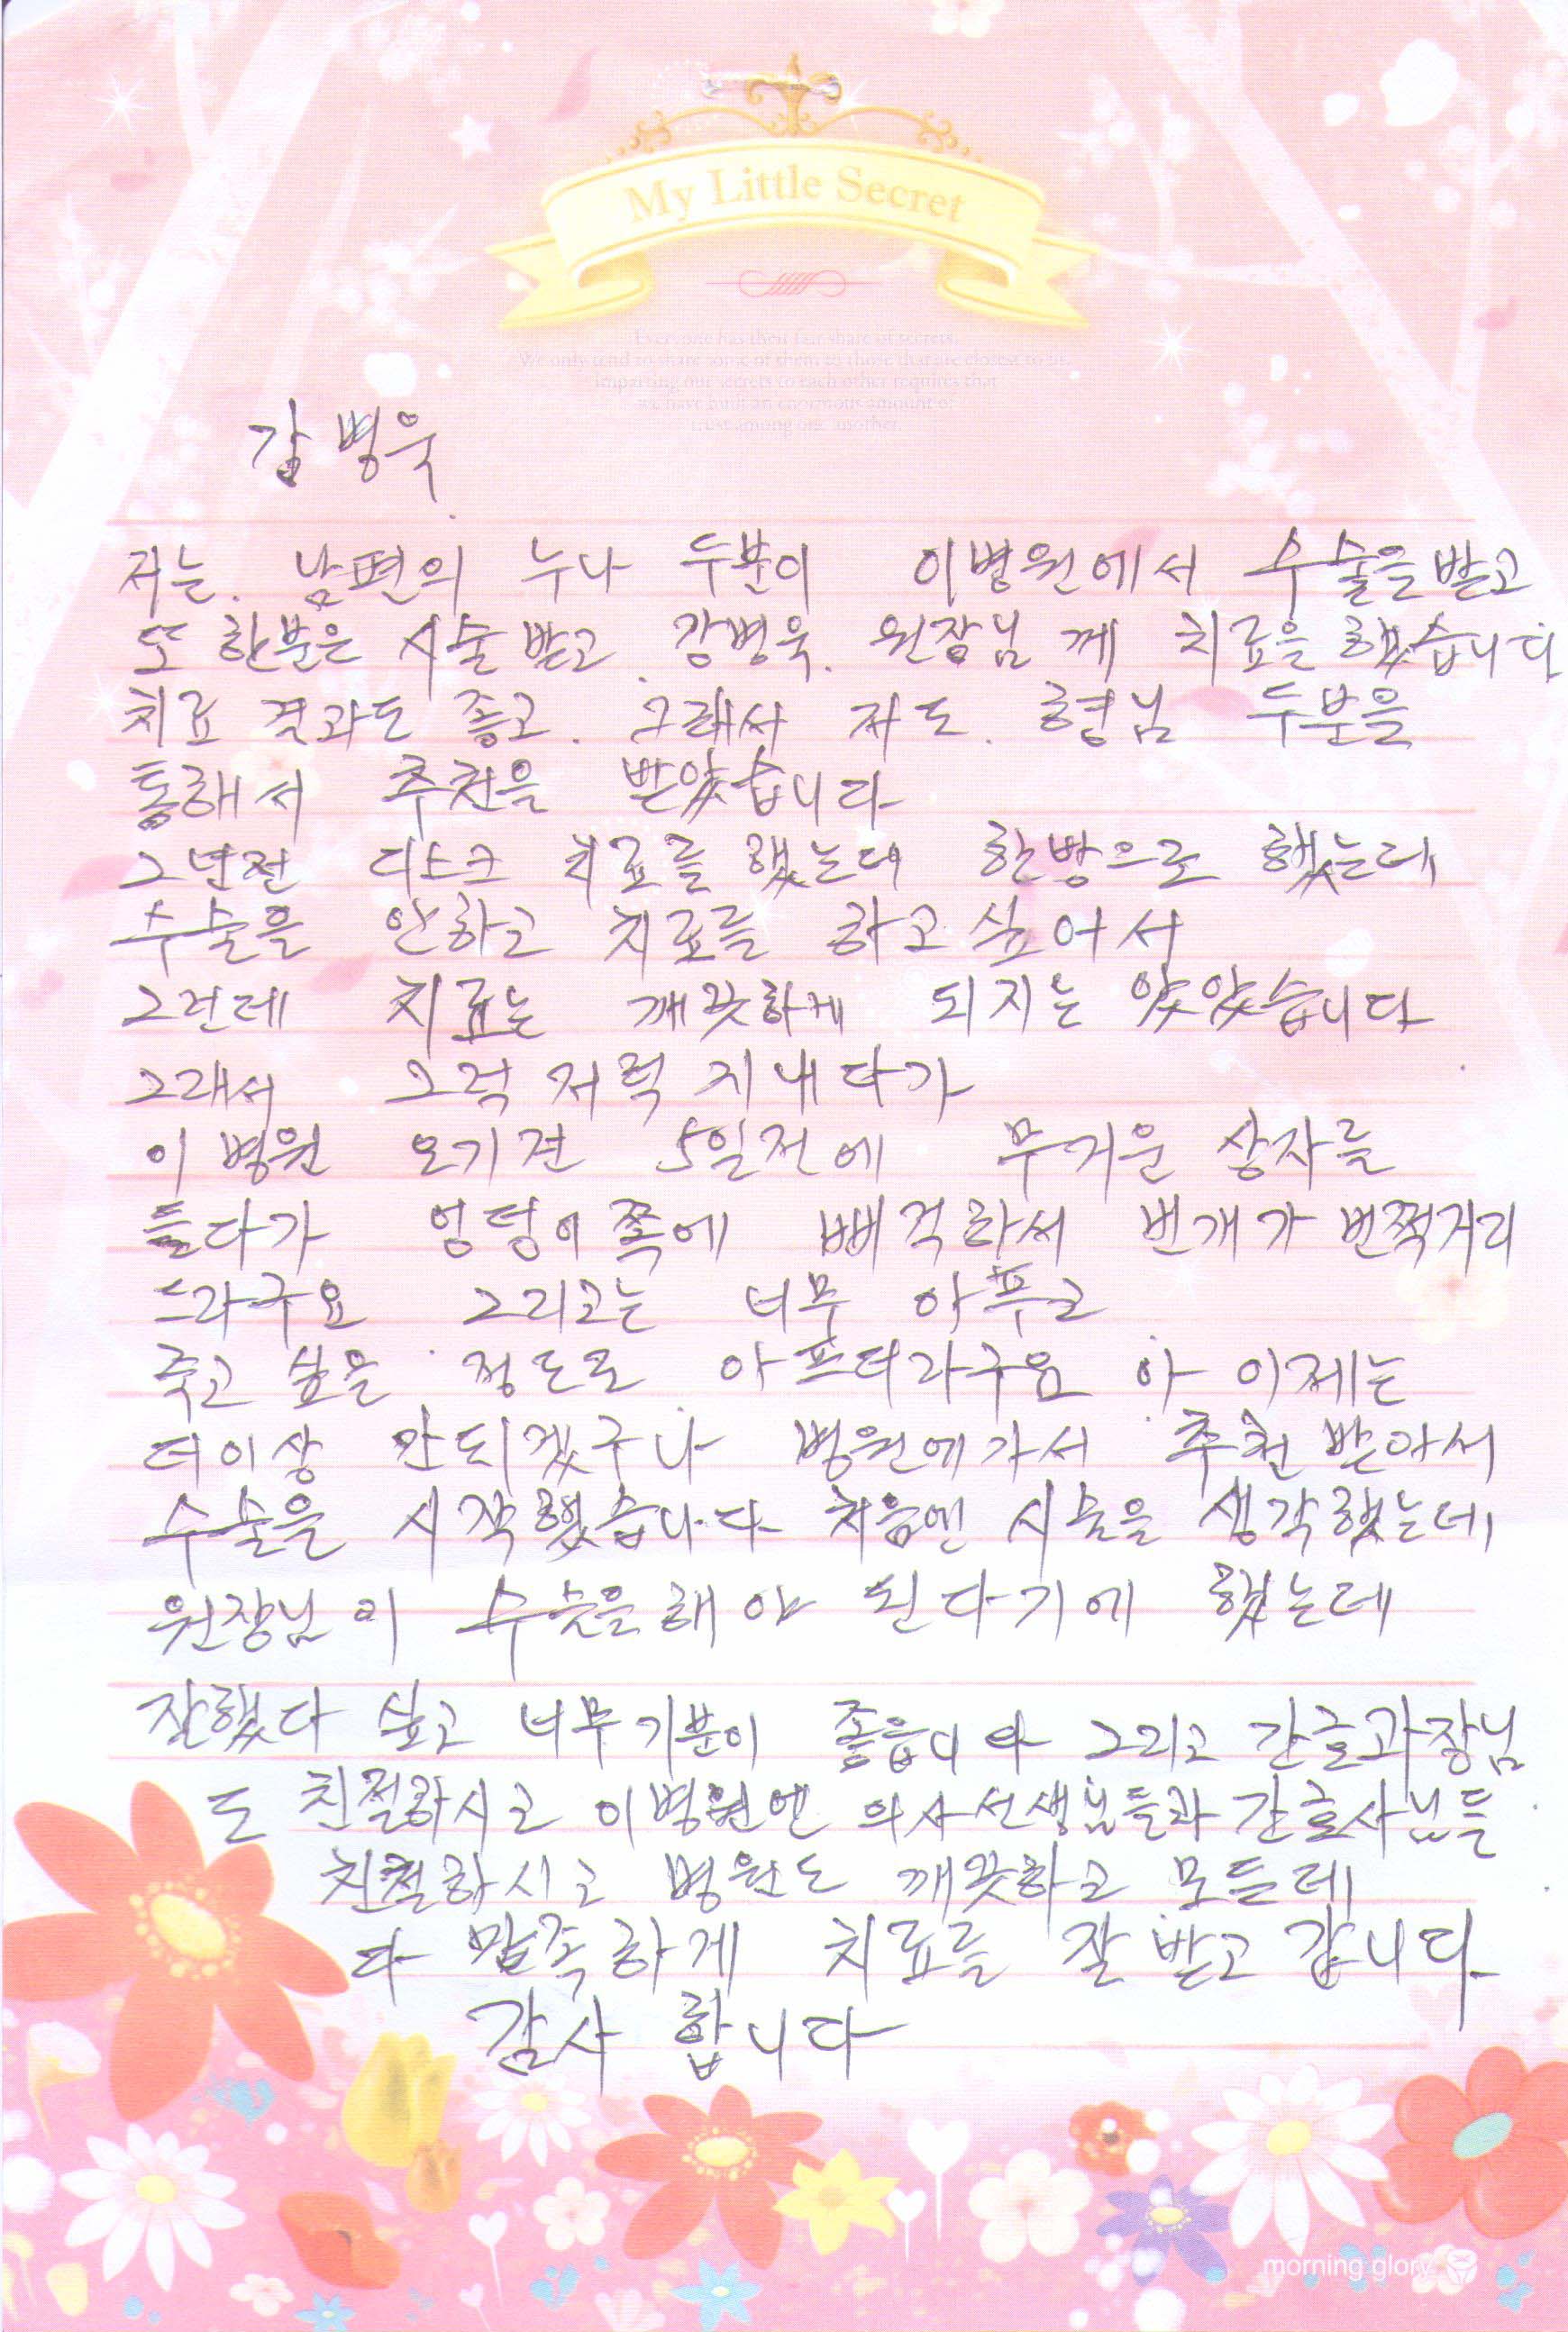 My Little Secret
Everyone has their fair share of secrets.
We only tend to share some of them to those that are closest to us.
imparting our secrets to each other requires that
we have built an enormous amount of
trust among one another.
강병욱
저는. 남편의 누나 두분이 이병원에서 수술을받고
또 한분은 시술 받고. 강병욱. 원장님 께 치료을 했습니다
치료 결과도 좋고. 그래서 저도. 형님 두분을
통해서 추천을 받았습니다
2년전 디스크 치료를 했는데 한방으로 했는데
수술을 안하고 치료를 하고싶어서
그런데 치료는 깨끗하게 되지는 않았습니다
그래서 그럭 저럭 지내다가
이 병원 오기전 5일전에 무거운 상자를
들다가 엉덩이쪽에 삐걱하서 번개가 번쩍거리
드라구요 그리고는 너무 아푸고
죽고 싶을 정도로 아프더라구요 아 이제는
더이상 안되겠구나 병원에가서 추천 받아서
수술을 시작했습니다 처음엔 시술을 생각했는데
원장님이 수술을해야 된다기에 했는데
잘했다 싶고 너무기분이 좋읍니다 그리고 간호과장님
도 친절하시고 이병원엔 의사선생님들과 간호사님들
친절하시고 병원도 깨끗하고 모든데
다 만족하게 치료를 잘 받고 갑니다
감사 합니다
morning glory